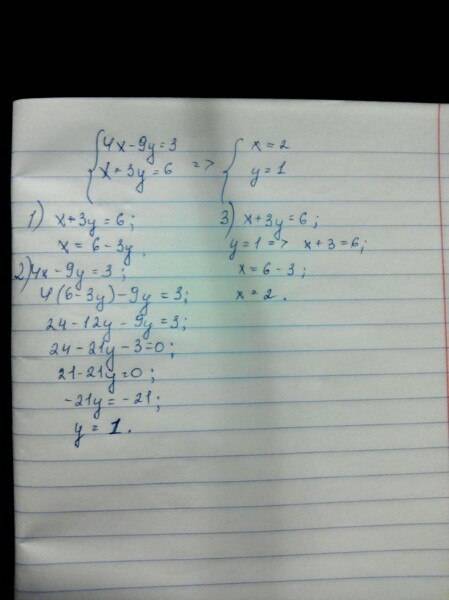 {4x-9y=3
x+3y=6 => {x=2
y=1
1) x+3y=6;
x=6-3y.
2) 4x-9y=3;
4(6-3y)-9y=3;
24-12y-9y=3;
24-21y-3=0;
21-21y=0;
-21y=-21;
y=1.
3) x+3y=6;
y=1=> x+3=6;
x=6-3;
x=2.